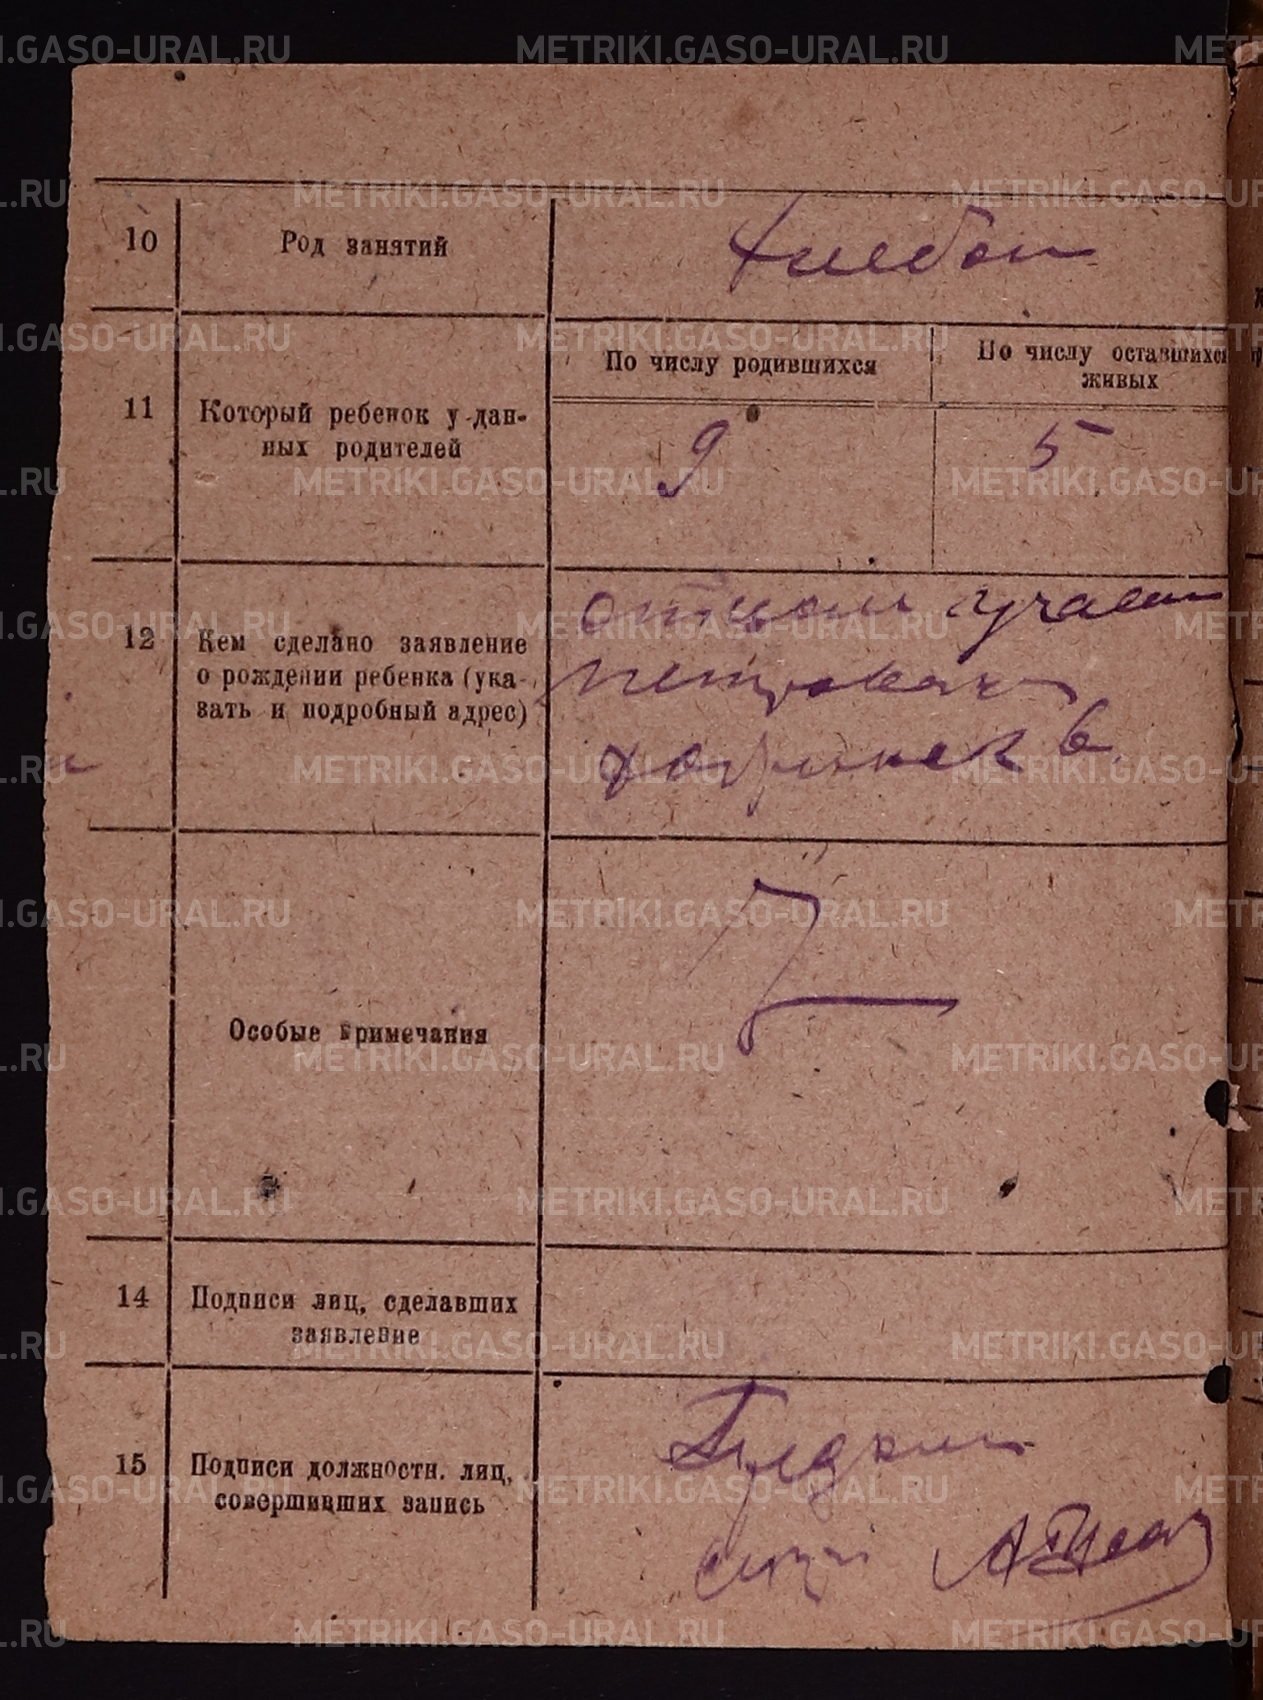 METRIKI.GASO-URAL.RU
10
Род занятий
хлебоп
11
Который ребенок у дан-
ных родителей
По числу родившихся
По числу оставшихся
живых
9
5
12
Кем сделано заявление
о рождении ребенка (ука-
зать и подробный адрес)
отцом
Петрович
Особые примечания
14
Подписи лиц, сделавших
заявление
15
Подписи должностн. лиц,
совершивших запись